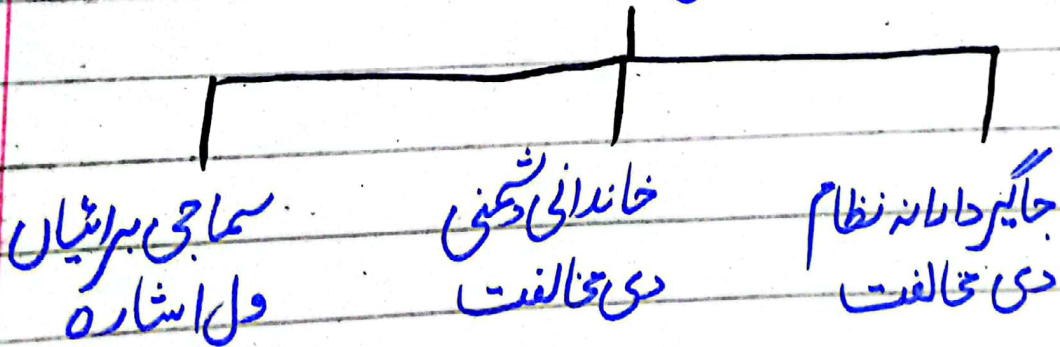 جاگیردارانہ نظام
دی مخالفت
خاندانی دشمنی
دی مخالفت
سماجی برائیاں
ول اشارہ